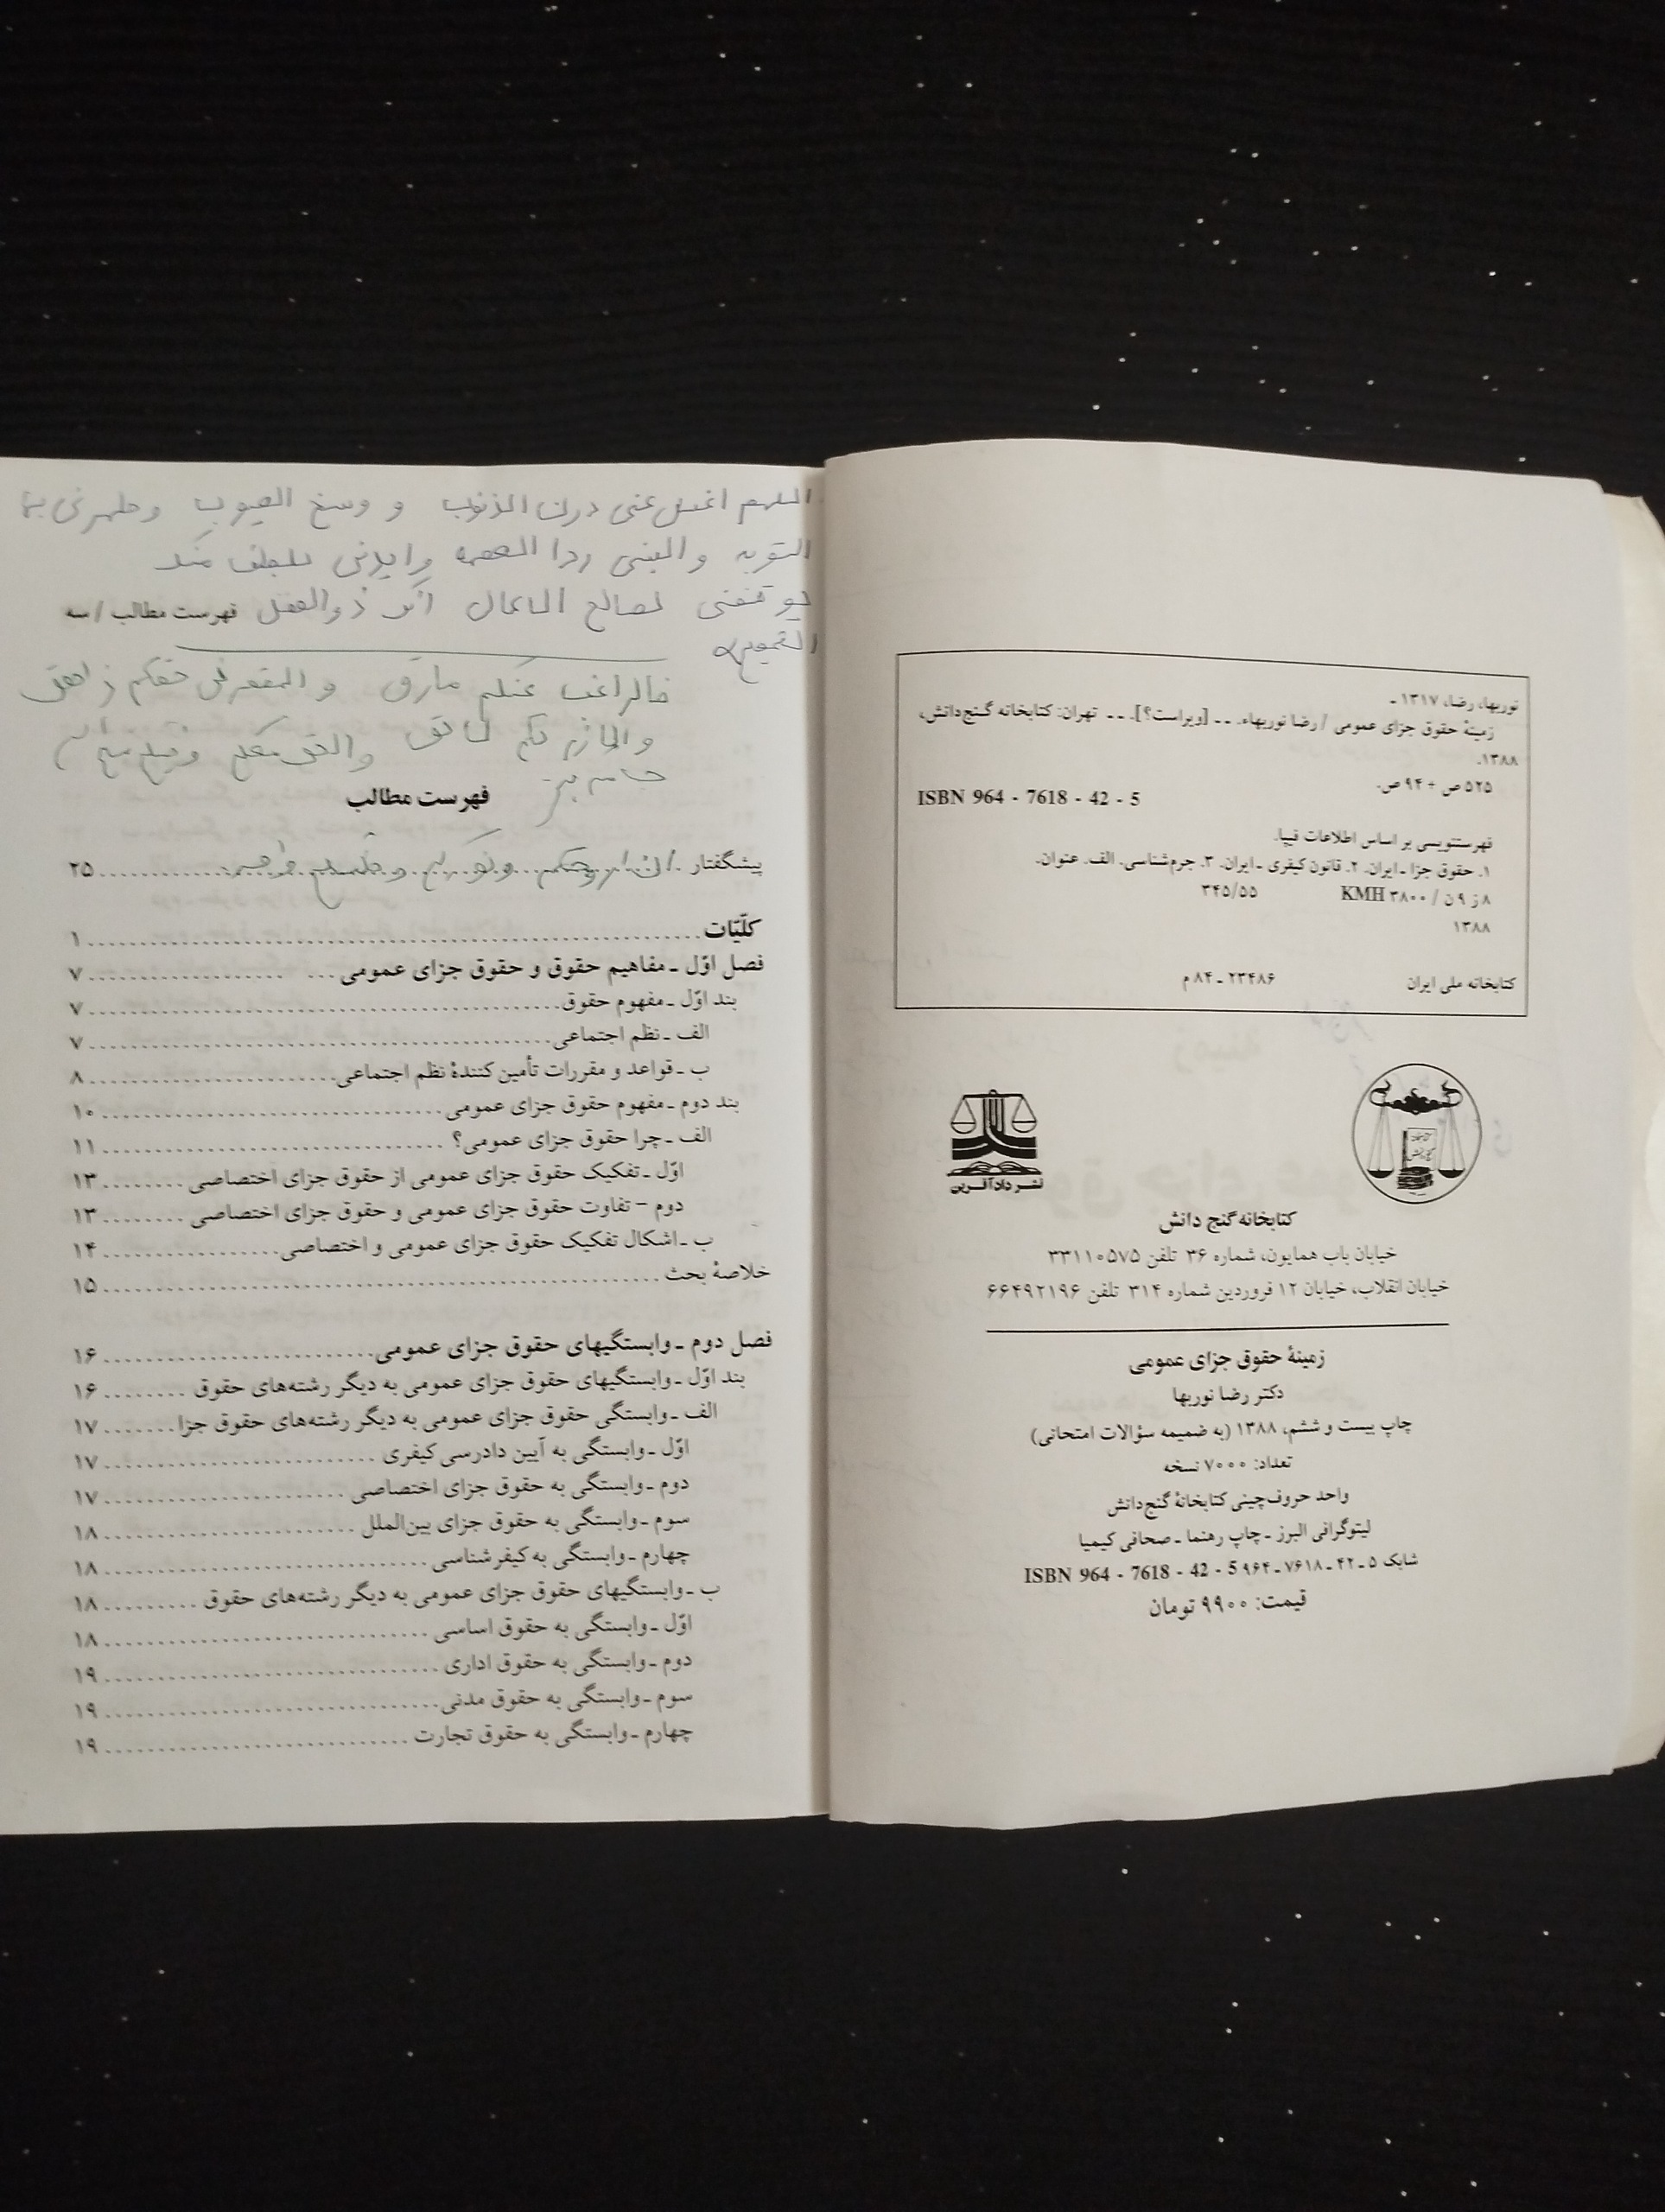 نوربها، رضا، ۱۳۱۷ ـ
زمینهٔ حقوق جزای عمومی / رضا نوربهاء. ـ ـ [ویراست؟]. ـ ـ تهران: کتابخانه گنج‌دانش،
۱۳۸۸.
۵۲۵ ص + ۹۴ ص.
ISBN 964 - 7618 - 42 - 5
فهرستنویسی بر اساس اطلاعات فیپا.
۱. حقوق جزا ـ ایران. ۲. قانون کیفری ـ ایران. ۳. جرم‌شناسی. الف. عنوان.
۸ ز ۹ ن / KMH ۳۸۰۰ ۳۴۵/۵۵
۱۳۸۸
کتابخانه ملی ایران ۲۳۴۸۶ ـ ۸۴ م
نشر دادآفرین
کتابخانه گنج دانش
خیابان باب همایون، شماره ۳۶ تلفن ۳۳۱۱۰۵۷۵
خیابان انقلاب، خیابان ۱۲ فروردین شماره ۳۱۴ تلفن ۶۶۴۹۲۱۹۶
زمینهٔ حقوق جزای عمومی
دکتر رضا نوربها
چاپ بیست و ششم، ۱۳۸۸ (به ضمیمه سؤالات امتحانی)
تعداد: ۷۰۰۰ نسخه
واحد حروف‌چینی کتابخانهٔ گنج‌دانش
لیتوگرافی البرز ـ چاپ رهنما ـ صحافی کیمیا
شابک ۵ ـ ۴۲ ـ ۷۶۱۸ ـ ۹۶۴ ISBN 964 - 7618 - 42 - 5
قیمت: ۹۹۰۰ تومان
اللهم اغسل عنی درن الذنوب و وسخ العیوب وطهرنی بما
التوبه والبسنی ردا العصمه وایدنی بلطف منک
یوفقنی لصالح الاعمال انک ذوالفضل
فهرست مطالب / سه
فالراغب عنکم مارق و المقصر فی حقکم زاهق
و اللازم لکم لاحق والحق معکم و فیکم
فهرست مطالب
پیشگفتار ........ ۲۵
کلّیّات ........ ۱
فصل اوّل ـ مفاهیم حقوق و حقوق جزای عمومی ........ ۷
بند اوّل ـ مفهوم حقوق ........ ۷
الف ـ نظم اجتماعی ........ ۷
ب ـ قواعد و مقررات تأمین کنندهٔ نظم اجتماعی ........ ۸
بند دوم ـ مفهوم حقوق جزای عمومی ........ ۱۰
الف ـ چرا حقوق جزای عمومی؟ ........ ۱۱
اوّل ـ تفکیک حقوق جزای عمومی از حقوق جزای اختصاصی ........ ۱۳
دوم – تفاوت حقوق جزای عمومی و حقوق جزای اختصاصی ........ ۱۳
ب ـ اشکال تفکیک حقوق جزای عمومی و اختصاصی ........ ۱۴
خلاصهٔ بحث ........ ۱۵
فصل دوم ـ وابستگیهای حقوق جزای عمومی ........ ۱۶
بند اوّل ـ وابستگیهای حقوق جزای عمومی به دیگر رشته‌های حقوق ........ ۱۶
الف ـ وابستگی حقوق جزای عمومی به دیگر رشته‌های حقوق جزا ........ ۱۷
اوّل ـ وابستگی به آیین دادرسی کیفری ........ ۱۷
دوم ـ وابستگی به حقوق جزای اختصاصی ........ ۱۷
سوم ـ وابستگی به حقوق جزای بین‌الملل ........ ۱۸
چهارم ـ وابستگی به کیفرشناسی ........ ۱۸
ب ـ وابستگیهای حقوق جزای عمومی به دیگر رشته‌های حقوق ........ ۱۸
اوّل ـ وابستگی به حقوق اساسی ........ ۱۸
دوم ـ وابستگی به حقوق اداری ........ ۱۹
سوم ـ وابستگی به حقوق مدنی ........ ۱۹
چهارم ـ وابستگی به حقوق تجارت ........ ۱۹